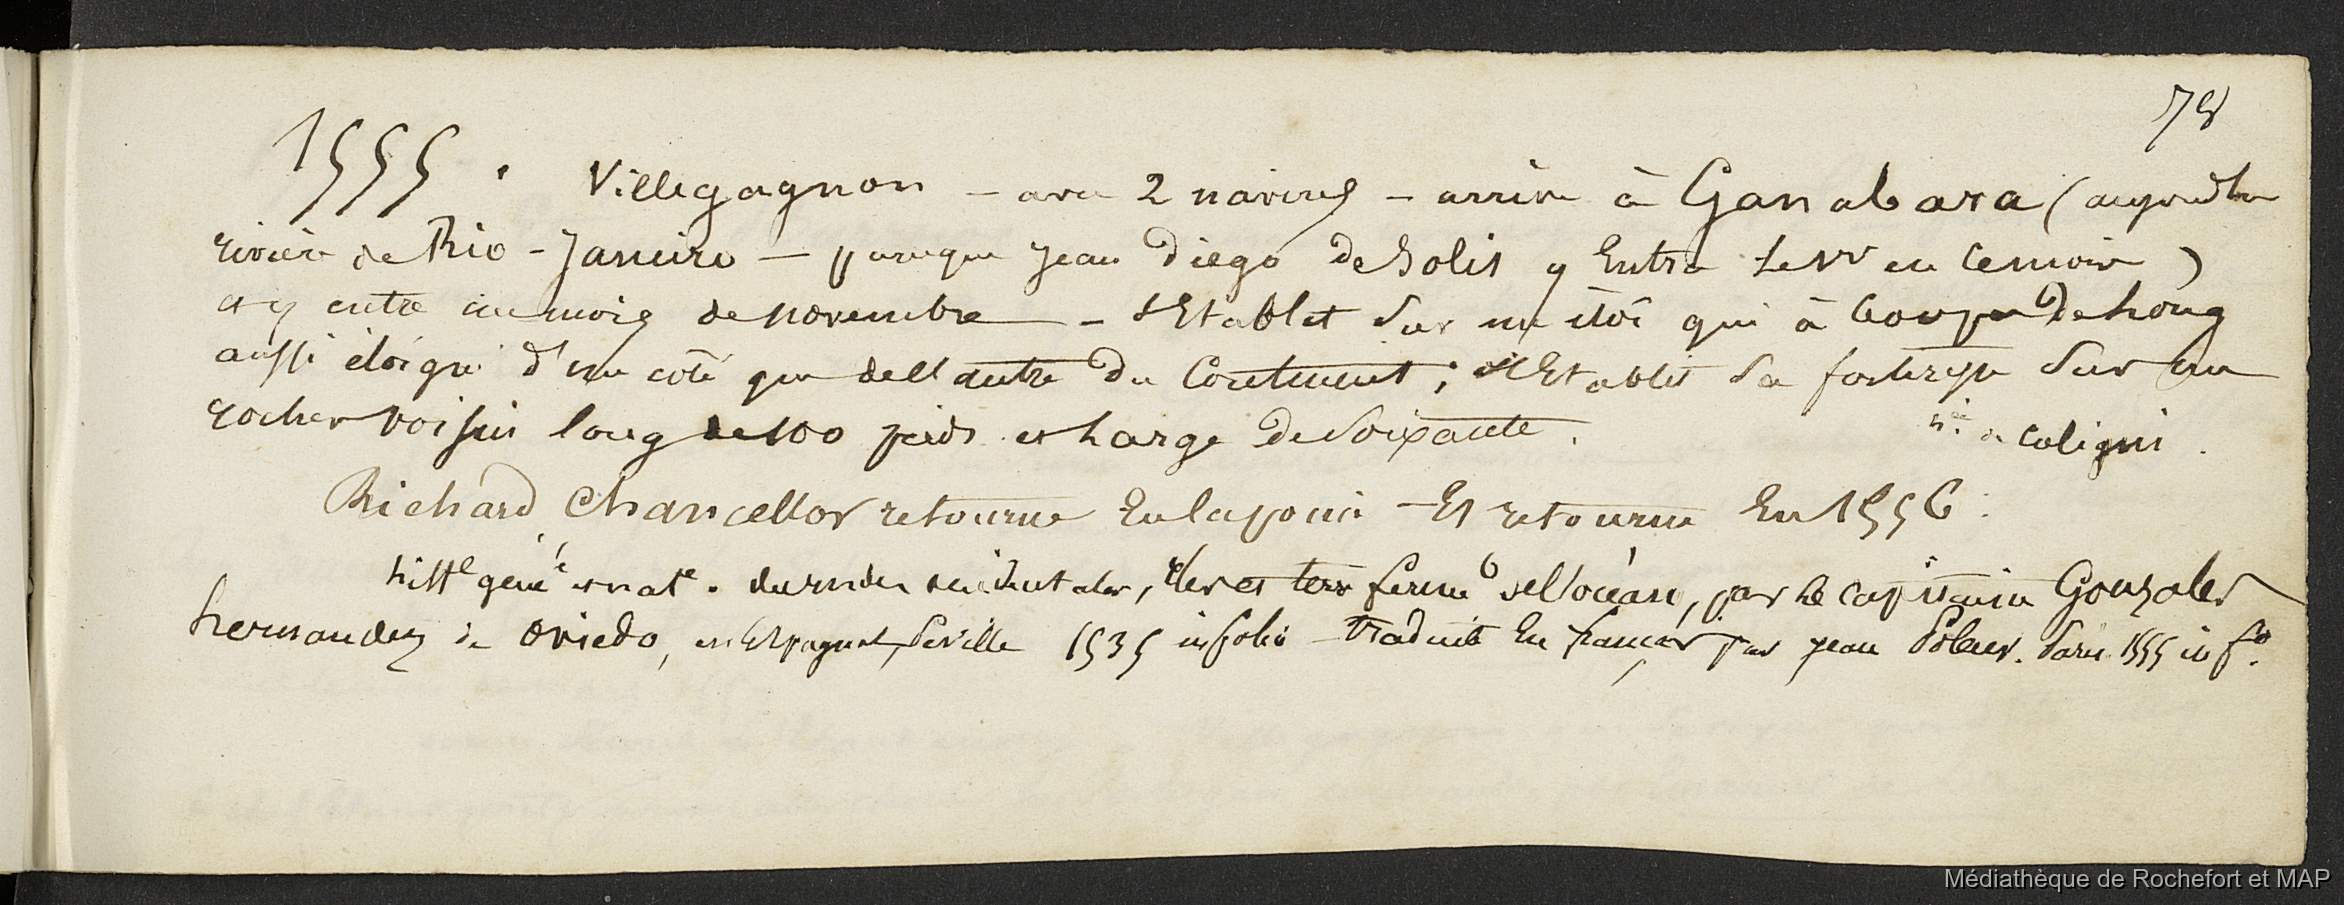 78
1555. Villegagnon – avec 2 navires – arrive à Ganabara (aujourdhu
riviere de Rio-Janeiro – parceque Jean Diego de Solis y Entra le 1er en Janvier)
et y entre au mois de novembre – s'Etablit sur un ilôt qui à
aussi éloigné d'un coté que de l'autre du Continent; il Etablit sa forteresse sur un
rocher voisin long de 100 pieds et large de soixante. né de Coligni.
Richard Chancellor retourne En laponie – Et retourne En 1556.
histe géné et nate. des indes occidentales, iles et terre ferme de l'océan, par le capitaine Gonzales
hernandez de Oviedo, en Espagnol, Seville 1535 in folio – traduite En francais par Jean Poleur. Paris 1555 in fo.